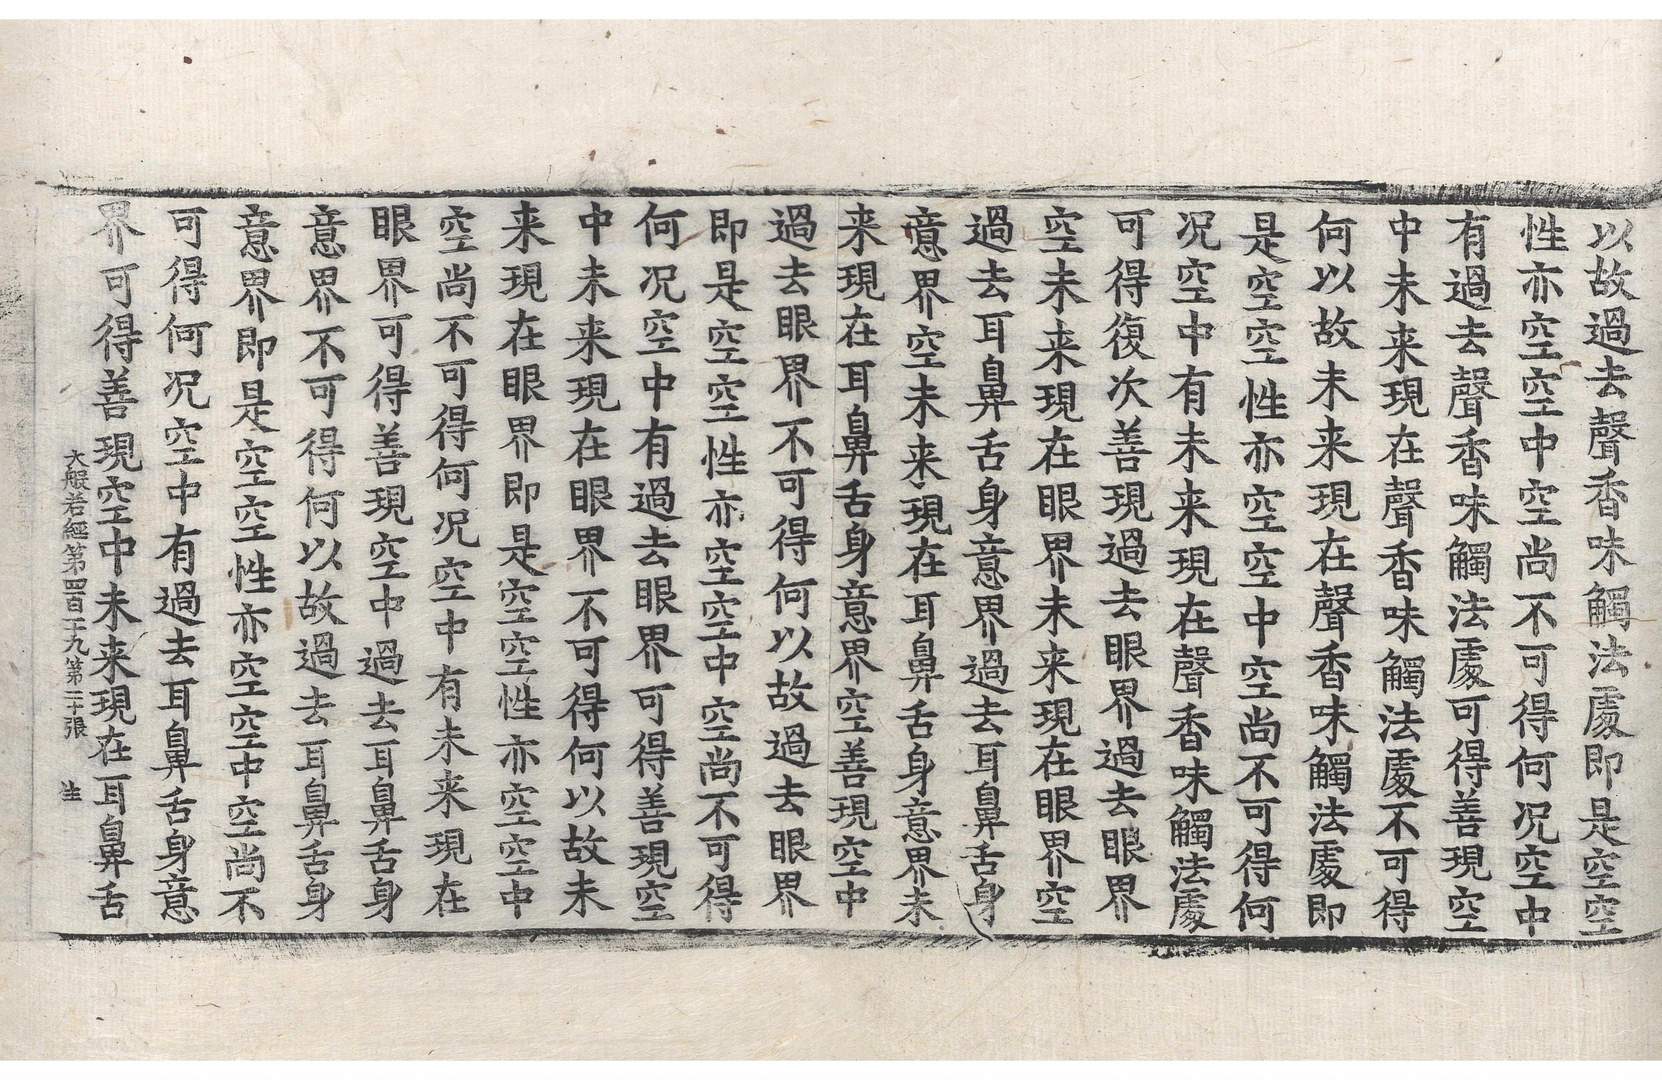 以故過去聲香味觸法處即是空空
性亦空空中空尚不可得何况空中
有過去聲香味觸法處可得善現空
中未来現在聲香味觸法處不可得
何以故未来現在聲香味觸法處即
是空空性亦空空中空尚不可得何
况空中有未来現在聲香味觸法處
可得復次善現過去眼界過去眼界
空未来現在眼界未来現在眼界空
過去耳鼻舌身意界過去耳鼻舌身
意界空未来現在耳鼻舌身意界未
来現在耳鼻舌身意界空善現空中
過去眼界不可得何以故過去眼界
即是空空性亦空空中空尚不可得
何况空中有過去眼界可得善現空
中未来現在眼界不可得何以故未
来現在眼界即是空空性亦空空中
空尚不可得何况空中有未来現在
眼界可得善現空中過去耳鼻舌身
意界不可得何以故過去耳鼻舌身
意界即是空空性亦空空中空尚不
可得何况空中有過去耳鼻舌身意
界可得善現空中未来現在耳鼻舌
大般若經第四百十九第二十張